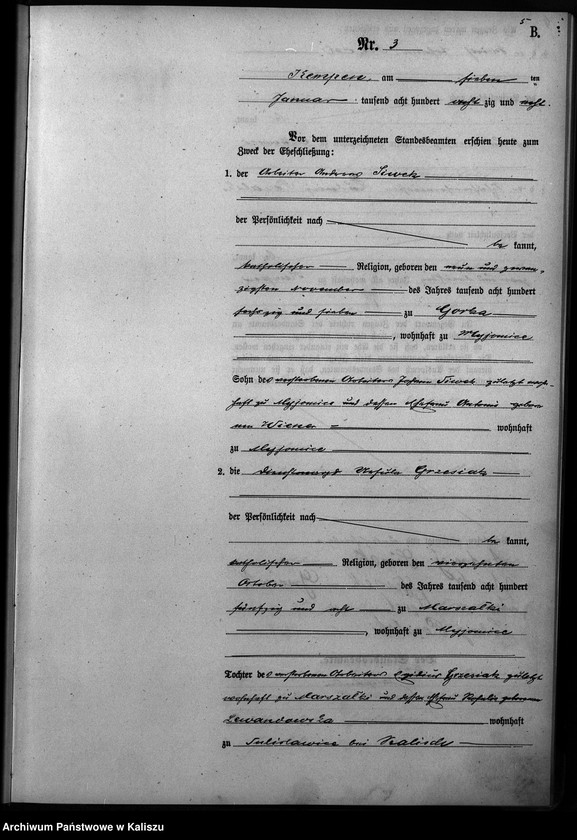 5
B.
Nr. 3
Kempen, am sieben ten
Januar tausend acht hundert acht zig und acht.
Vor dem unterzeichneten Standesbeamten erschien heute zum
Zweck der Eheschließung:
1. der Arbeiter Andreas Siwek
der Persönlichkeit nach
be kannt,
katholischer Religion, geboren den neun und zwan-
zigsten November des Jahres tausend acht hundert
sechszig und sieben zu Gorka
, wohnhaft zu Myjomice
Sohn des verstorbenen Arbeiters Johann Siwek zuletzt wohn-
haft zu Myjomice und dessen Ehefrau Antonie gebore-
nen wohnhaft
zu Myjomice
2. die Dienstmagd Grzesiak
der Persönlichkeit nach
be kannt,
katholischer Religion, geboren den vierzehnten
October des Jahres tausend acht hundert
fünfzig und acht zu Marszałki
, wohnhaft zu Myjomice
Tochter des verstorbenen Arbeiters Grzesiak zuletzt
wohnhaft zu Marszałki und dessen Ehefrau geborenen
Lewandowska wohnhaft
zu Sulisławice bei Kalisch
Archiwum Państwowe w Kaliszu